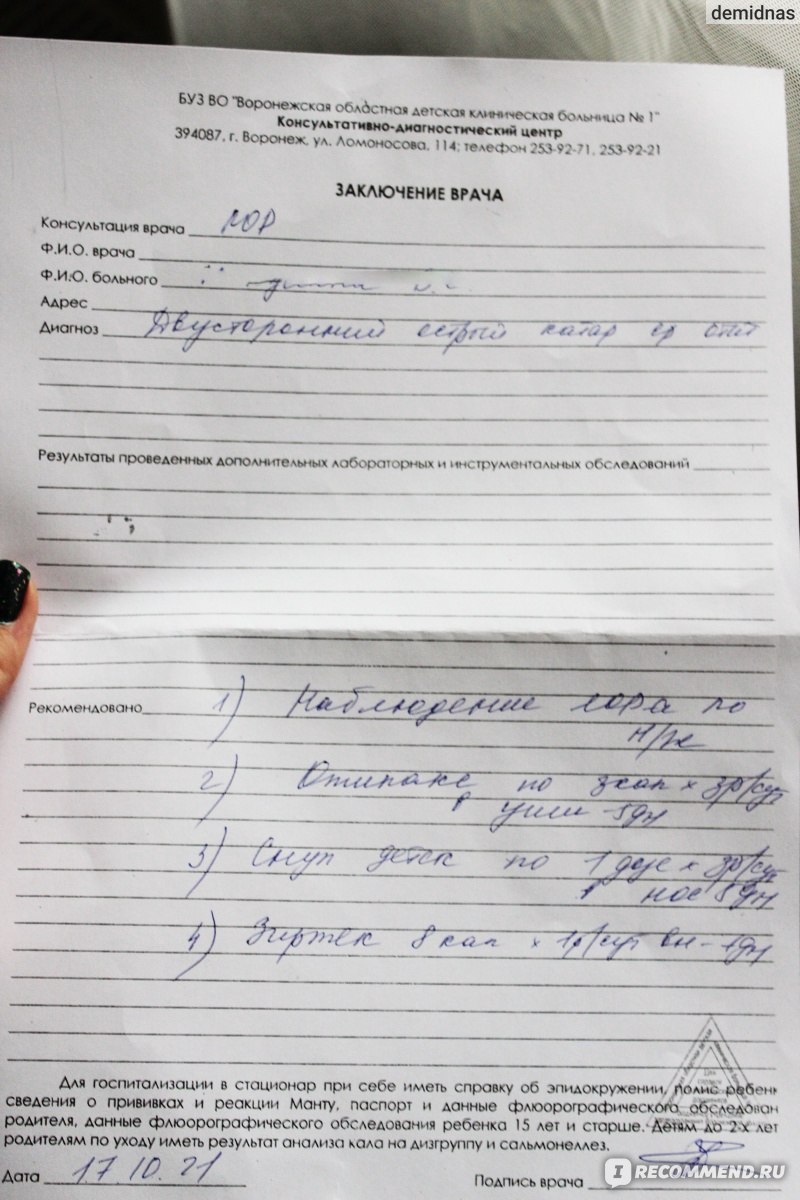 demidnas
БУЗ ВО "Воронежская областная детская клиническая больница № 1"
Консультативно-диагностический центр
394087, г. Воронеж, ул. Ломоносова, 114; телефон 253-92-71, 253-92-21
ЗАКЛЮЧЕНИЕ ВРАЧА
Консультация врача ЛОР
Ф.И.О. врача
Ф.И.О. больного
Адрес
Диагноз Двусторонний острый катар ср отит
Результаты проведенных дополнительных лабораторных и инструментальных обследований
Рекомендовано 1) Наблюдение ЛОРа по
м/ж
2) Отипакс по 3кап х 3р/сут
в уши - 5дн
3) Снуп детск по 1 доз х 3р/сут
в нос 5дн
4) Зиртек 8 кап х 1р/сут вн - 7дн
Для госпитализации в стационар при себе иметь справку об эпидокружении, полис ребенк
сведения о прививках и реакции Манту, паспорт и данные флюорографического обследован
родителя, данные флюорографического обследования ребенка 15 лет и старше. Детям до 2-х лет
родителям по уходу иметь результат анализа кала на дизгруппу и сальмонеллез.
Дата 17.10.21 Подпись врача
IRECOMMEND.RU